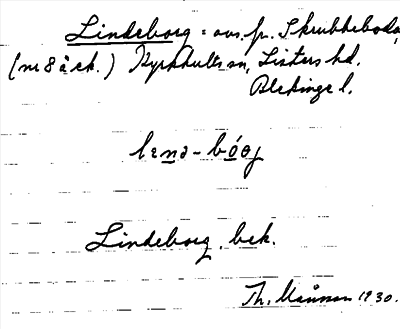 Lindeborg = avs. fr. Skrubbeboda,
(nr 8 å ek.) Kyrkhults sn, Listers hd.
Blekinge l.
lenə-bóəj
Lindeborg, bek.
Th. Månsson 1930.